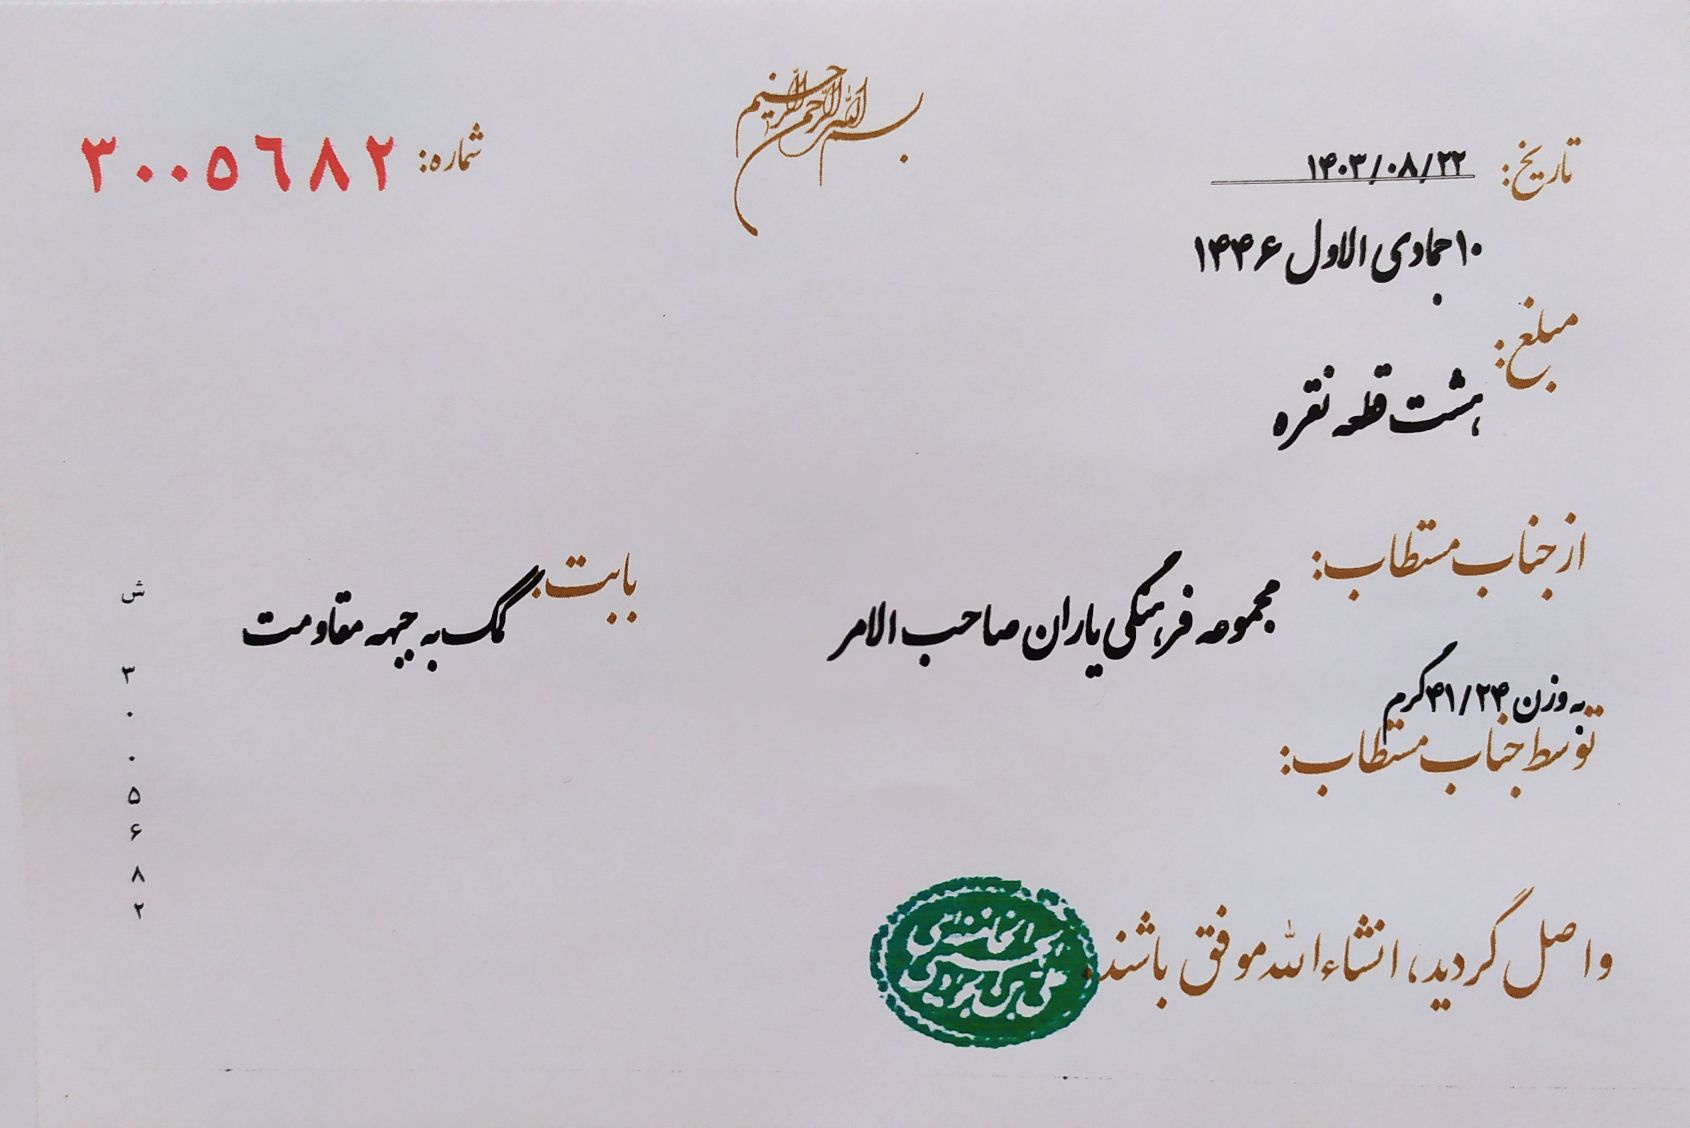 بسم الله الرحمن الرحیم
تاریخ: ۱۴۰۳/۰۸/۲۲
شماره: ۳۰۰۵٦۸۲
۱۰ جمادی الاول ۱۴۴۶
مبلغ:
هشت قطعه نقره
از جناب مستطاب:
مجموعه فرهنگی یاران صاحب الامر
بابت:
کمک به جبهه مقاومت
به وزن ۴۱/۲۴ گرم
توسط جناب مستطاب:
واصل گردید، انشاءالله موفق باشند.
ش
۳
۰
۰
۵
۶
۸
۲